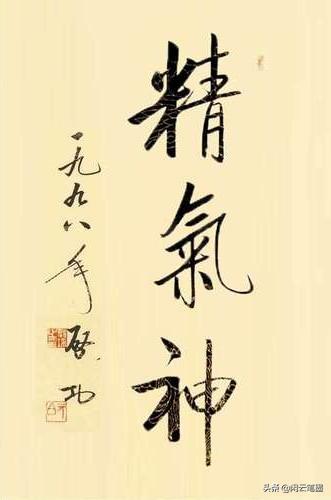 精氣神
一九九八年 啓功
头条@闲云笔圃